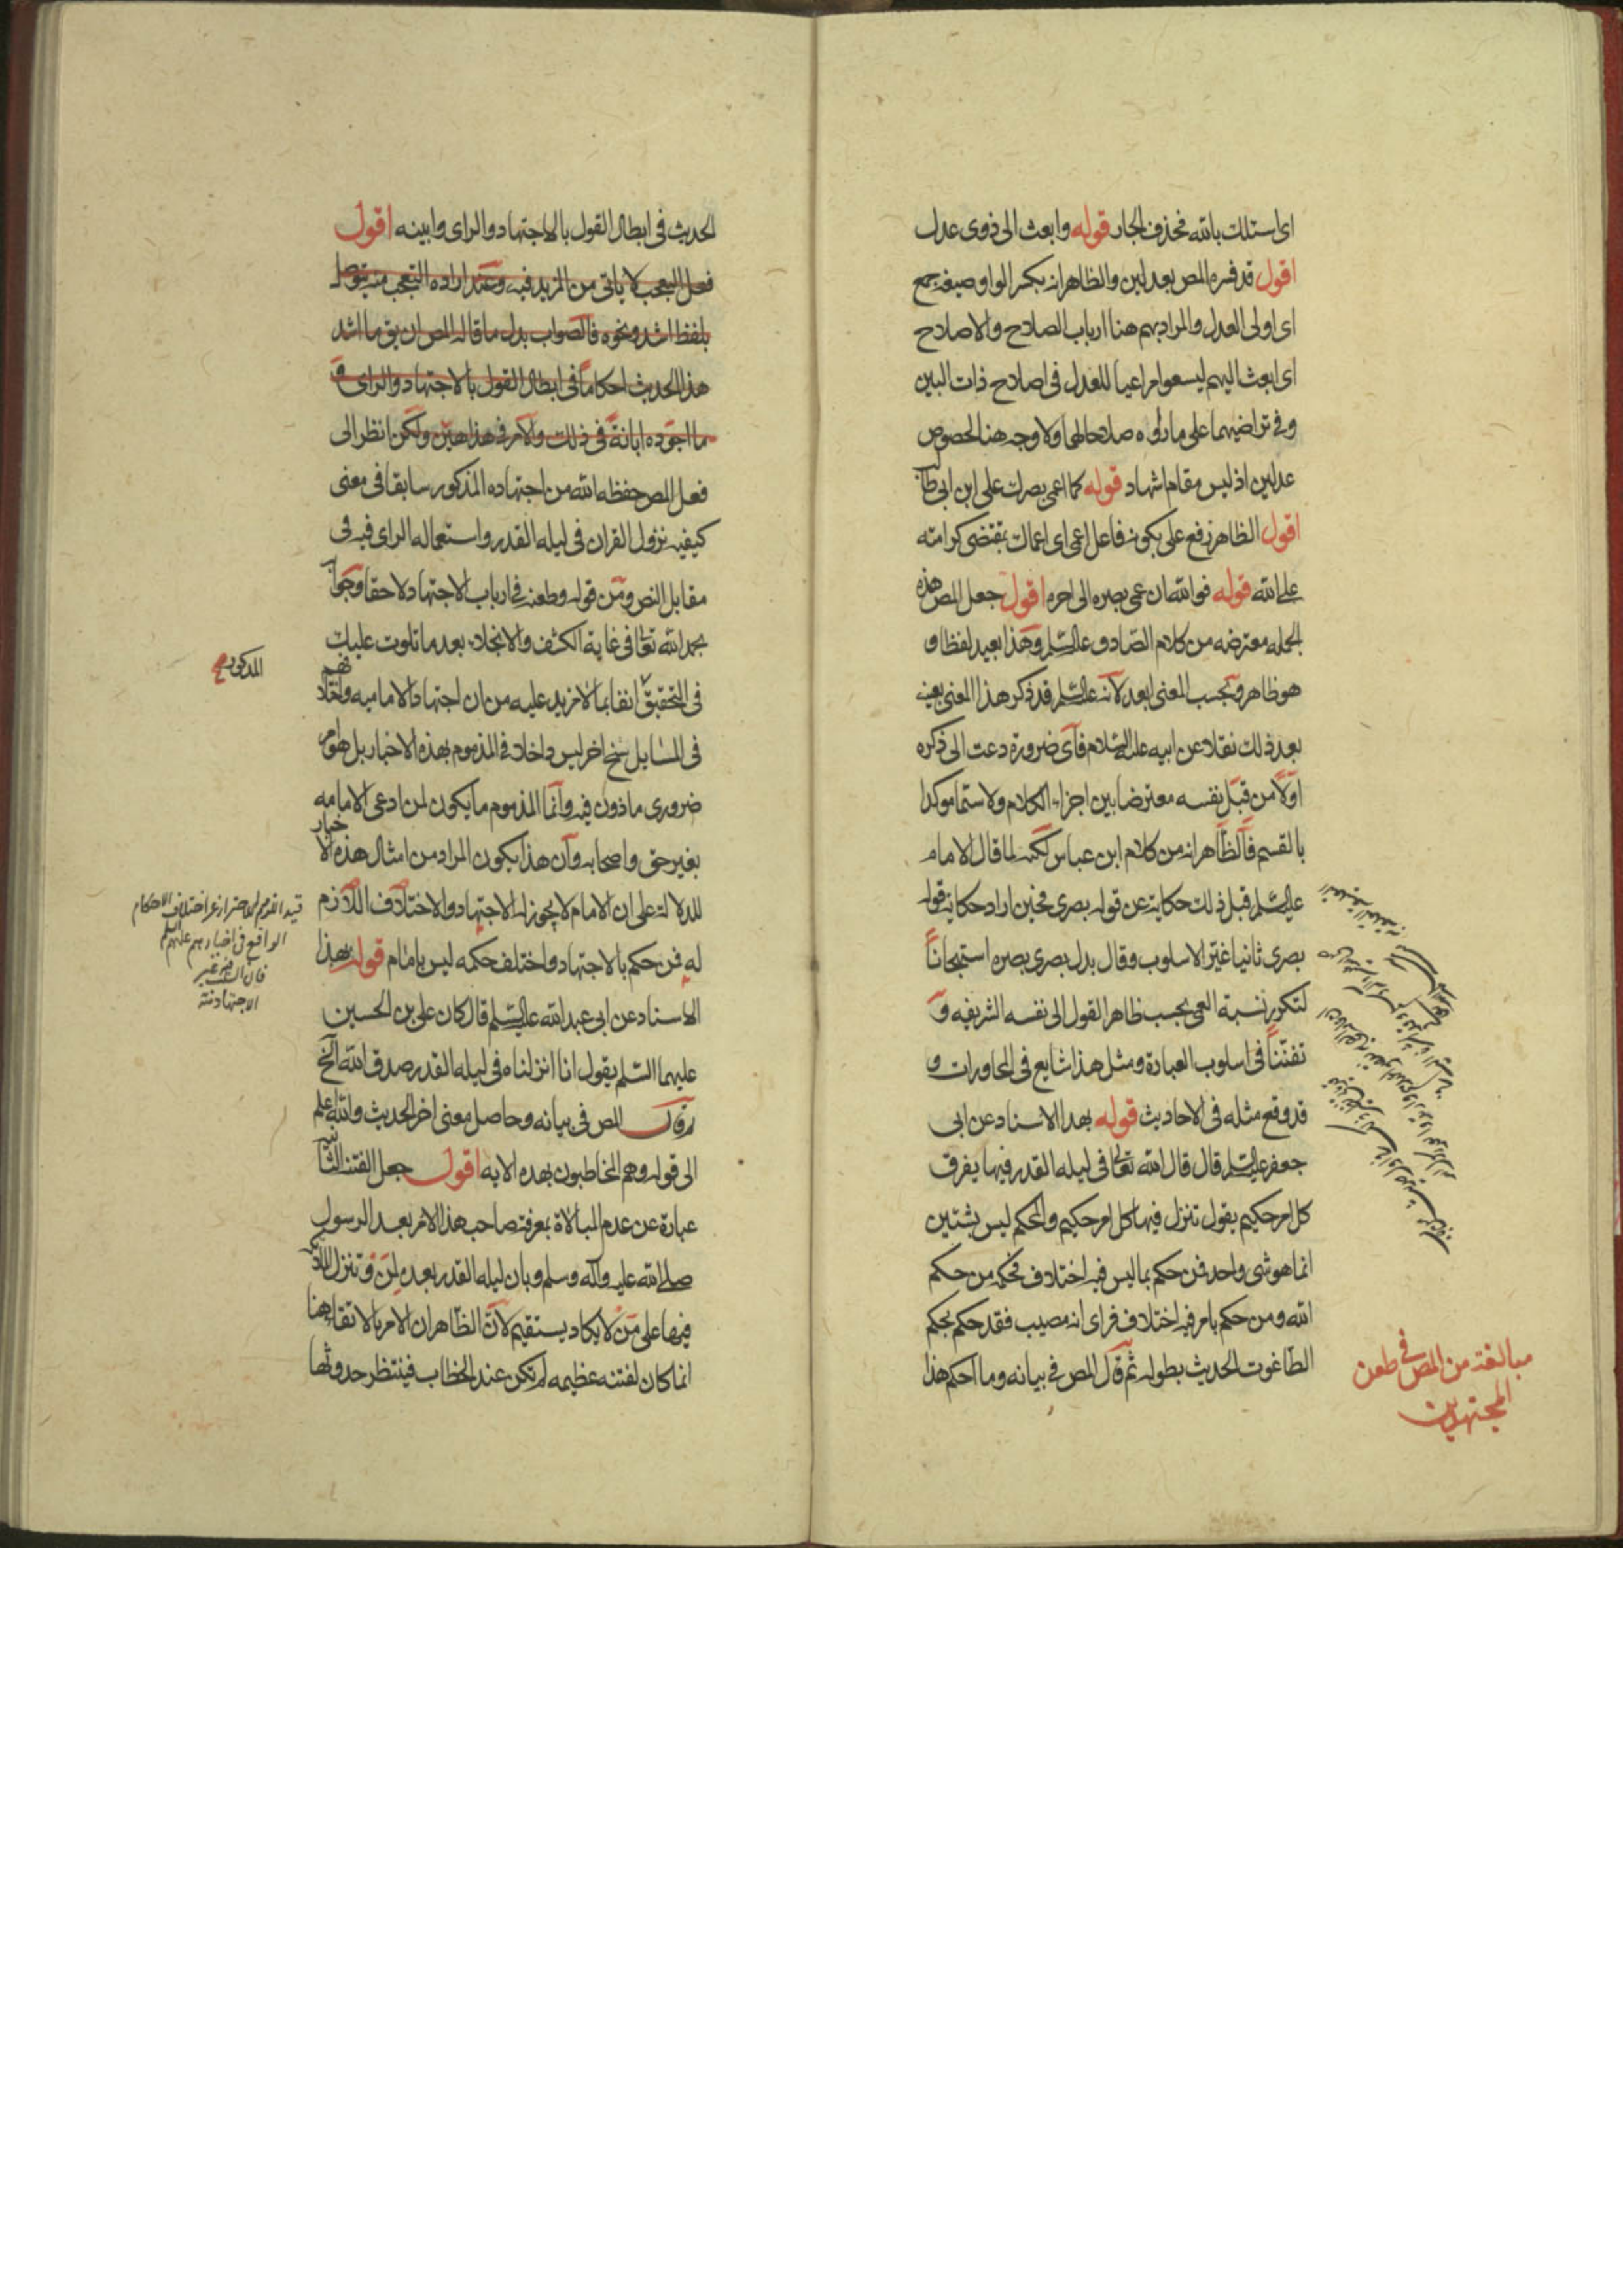 اى اسئلك بالله فحذف الجار قوله وابعث الى ذوى عدل
اقول قد فسره المص بعدلين والظاهر انه بكسر الواو صيغة جمع
اى اولى العدل والمراد بهم هنا ارباب الصلاح والاصلاح
اى ابعث اليهم ليسعوا مراعيا للعدل فى اصلاح ذات البين
وفى تراضيهما على ما رأوه صلاحا لهما ولا وجه هنا لخصوص
عدلين اذ ليس مقام اشهاد قوله كما اعمى بصرك على ابن ابى طالب
اقول الظاهر رفع على بكونه فاعل اعمى اى اعماك بمقتضى كرامته
على الله قوله فوالله ان عمى بصره الى اخره اقول جعل المص هذه
الجمله معترضه من كلام الصادق عليه السلم وهذا بعيد لفظا و
هو ظاهر وبحسب المعنى ابعد لانه عليه السلم قد ذكر هذا المعنى بعينه
بعد ذلك نقلا عن ابيه عليه السلام فاى ضرورة دعت الى ذكره
اولا من قبل نفسه معترضا بين اجزاء الكلام ولا سيما موكدا
بالقسم فالظاهر انه من كلام ابن عباس لكنه لما قال الامام
عليه السلم قبل ذلك حكاية عن قوله بصرى فحين اراد حكاية قوله
بصرى ثانيا غير الاسلوب وقال بدل بصرى بصره استهجانا
لتكرر نسبة العمى بحسب ظاهر القول الى نفسه الشريفه و
تفننا فى اسلوب العبارة ومثل هذا شايع فى المحاورات و
قد وقع مثله فى الاحاديث قوله بهذا الاسناد عن ابى
جعفر عليه السلم قال قال الله تعالى فى ليله القدر فيها يفرق
كل امر حكيم يقول تنزل فيها كل امر حكيم والمحكم ليس بشيئين
انما هو شى واحد فمن حكم بما ليس فيه اختلاف فحكمه من حكم
الله ومن حكم بامر فيه اختلاف فراى انه مصيب فقد حكم بحكم
الطاغوت الحديث بطوله ثم قال المص فى بيانه وما احكم هذا
مبالغة من المص فى طعن
المجتهدين
الحديث فى ابطال القول بالاجتهاد والراى وابينه اقول
فعل التعجب لا ياتى من المزيد فيه وعند اراده التعجب منه يتوصل
بلفظ اشد ونحوه فالصواب بدل ما قاله المص ان يق ما اشد
هذا الحديث احكاما فى ابطال القول بالاجتهاد والراى و
ما اجوده ابانة فى ذلك والامر فى هذا هين ولكن انظر الى
فعل المص حفظه الله من اجتهاده المذكور سابقا فى معنى
كيفيه نزول القران فى ليله القدر واستعماله الراى فيه فى
مقابل النص ومن قوله وطعنه فى ارباب الاجتهاد لاحقا وجوابه
بحمد الله تعالى فى غاية الكشف والانجلاء بعد ما تلوت عليك
فى التحقيق انفا بما لا مزيد عليه من ان اجتهاد الاماميه واختلافهم
المذكور صح
فى المسايل سنخ اخر ليس داخلا فى المذموم بهذه الاخبار بل هو امر
ضرورى ماذون فيه وانما المذموم ما يكون لمن ادعى الامامه
بغير حق واصحابه وان هذا يكون المراد من امثال هذه الاخبار
للدلالة على ان الامام لا يجوز له الاجتهاد والاختلاف اللازم
له فمن حكم بالاجتهاد واختلف حكمه ليس بامام قوله بهذا
قيد اللازم للاحتراز عن اختلاف الاحكام
الواقع فى اخبارهم عليهم السلم
الاسناد عن ابى عبد الله عليه السلم قال كان على بن الحسين
عليهما السلم يقول انا انزلناه فى ليله القدر صدق الله الخ
وقال المص فى بيانه وحاصل معنى اخر الحديث والله اعلم
الى قوله وهم المخاطبون بهذه الايه اقول جعل الفتنه الثانيه
عبارة عن عدم المبالاة بمعرفة صاحب هذا الامر بعد الرسول
صلى الله عليه وآله وسلم وبان ليله القدر بعده لمن وتنزل الملائكه
فيها على من لا يكاد يستقيم لان الظاهر ان الامر بالاتقاء هنا
انما كان لفتنه عظيمه لم تكن عند الخطاب فينتظر حدوثها